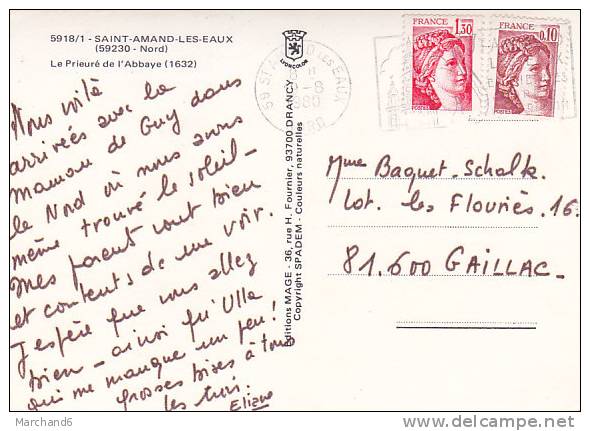 5918/1 - SAINT-AMAND-LES-EAUX
(59230 - Nord)
Le Prieuré de l'Abbaye (1632)
LYONCOLOR
FRANCE
1,30
POSTES
FRANCE
0,10
POSTES
59 ST AMAND LES EAUX
1980
Nous voilà
arrivées avec la
maman de Guy dans
le Nord où nous avons
même trouvé le soleil -
Mes parents vont bien
et contents de me voir.
J'espère que vous allez
bien - ainsi qu'Ulla
qui me manque un peu!
Grosses bises à tous
les trois.
Eliane
Editions MAGE - 36, rue H. Fournier, 93700 DRANCY
Copyright SPADEM - Couleurs naturelles
Mme Baquet-Schalk.
Lot. les Flouriès.16.
81.600 GAILLAC-
Marchand6